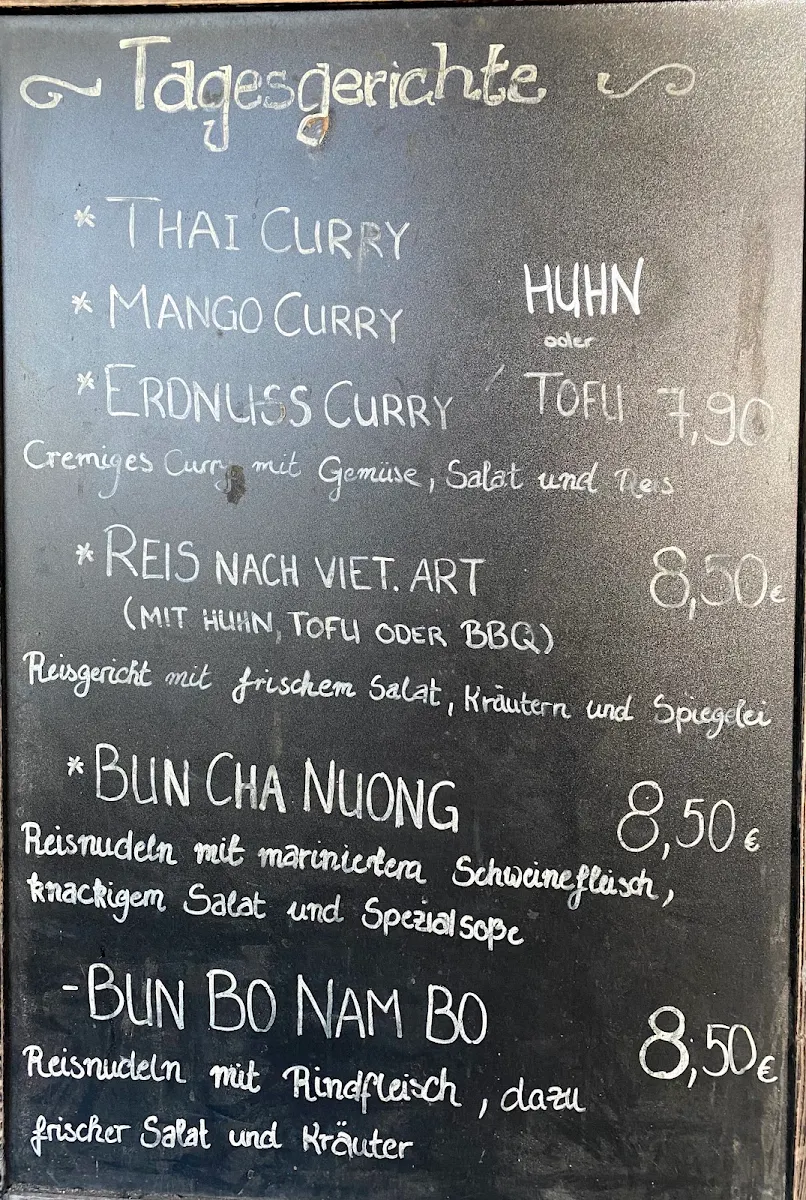 Tagesgerichte
* THAI CURRY
* MANGO CURRY
HUHN
oder
* ERDNUSS CURRY
TOFU 7,90
Cremiges Curry mit Gemüse, Salat und Reis
* REIS NACH VIET. ART 8,50€
(MIT HUHN, TOFU ODER BBQ)
Reisgericht mit frischem Salat, Kräutern und Spiegelei
* BUN CHA NUONG 8,50€
Reisnudeln mit mariniertem Schweinefleisch,
knackigem Salat und Spezialsoße
- BUN BO NAM BO 8,50€
Reisnudeln mit Rindfleisch, dazu
frischer Salat und Kräuter